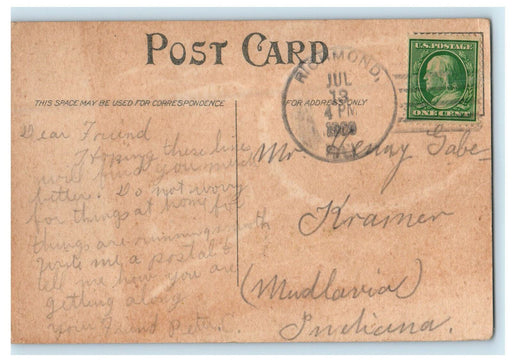 POST CARD
THIS SPACE MAY BE USED FOR CORRESPONDENCE
FOR ADDRESS ONLY
RICHMOND,
JUL
13
4 PM
1909
U.S. POSTAGE
ONE CENT
Dear Friend
Hoping these line
will find you much
better. Do not worry
for things at home for
things are running
Write me a postal &
tell me how you are
getting along
your Friend Peter
Mr. Gabe
Kramer
(Mudlavia)
Indiana.